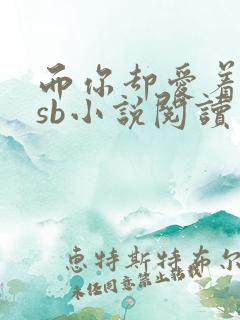 而你却爱着
sb小说阅读
惠特斯特布尔
未经同意禁止转载